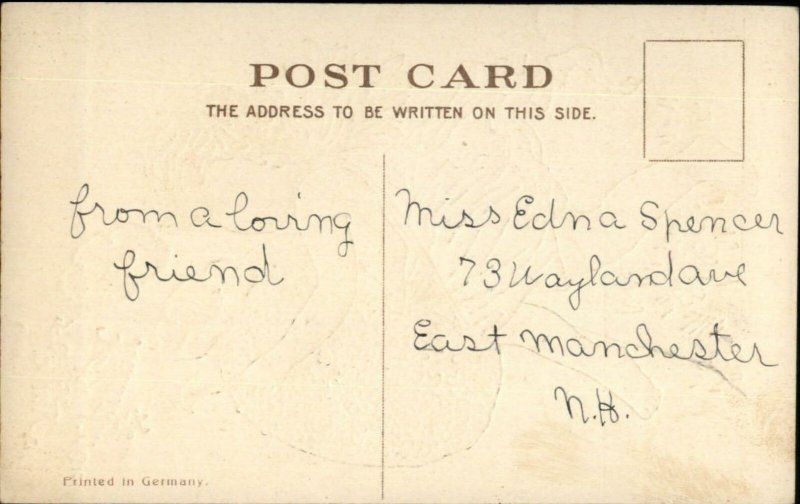 POST CARD
THE ADDRESS TO BE WRITTEN ON THIS SIDE.
from a loving
friend
Miss Edna Spencer
73 Wayland ave
East Manchester
N.H.
Printed in Germany.